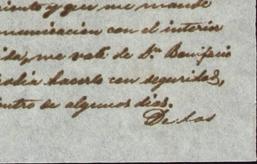 miento y que me mande
municacion con el interin
ida, me vali de Dn Bonifacio
odia hacerlo con seguridad,
entro de algunos dias.
De las